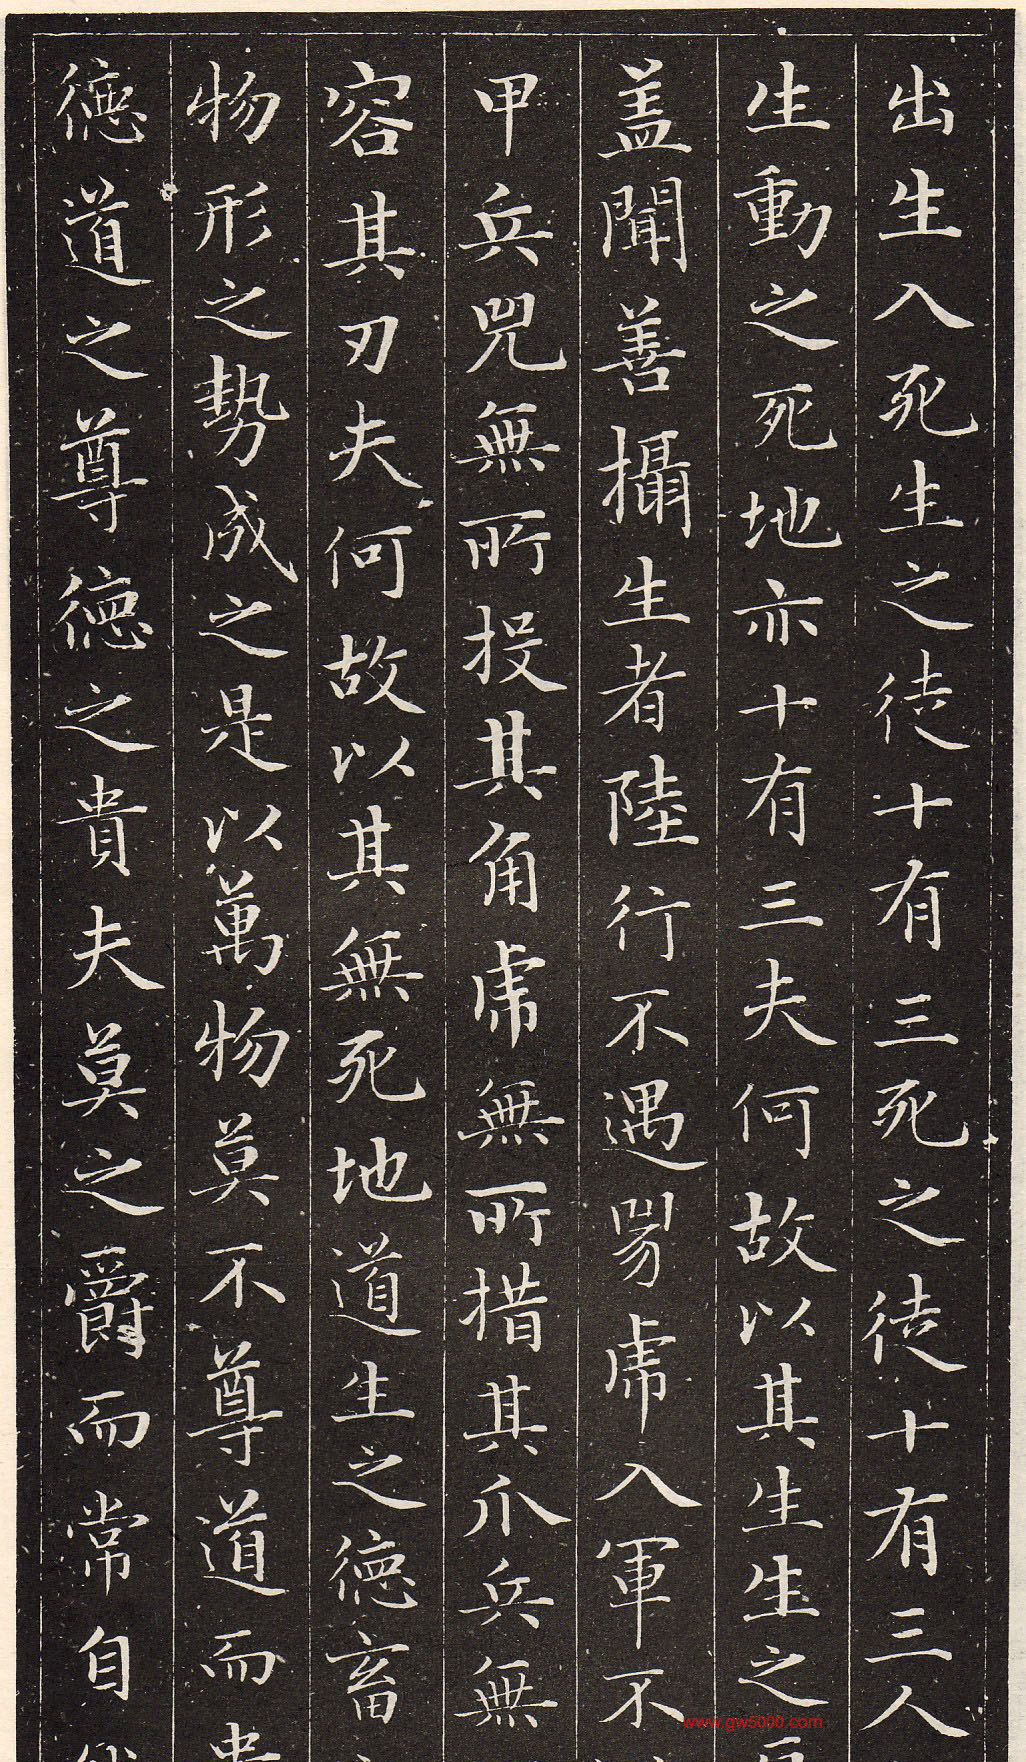 出生入死生之徒十有三死之徒十有三人
生動之死地亦十有三夫何故以其生生之
盖聞善攝生者陸行不遇兕虎入軍不
甲兵兕無所投其角虎無所措其爪兵無
容其刃夫何故以其無死地道生之德畜
物形之勢成之是以萬物莫不尊道而貴
德道之尊德之貴夫莫之爵而常自
www.gw5000.com